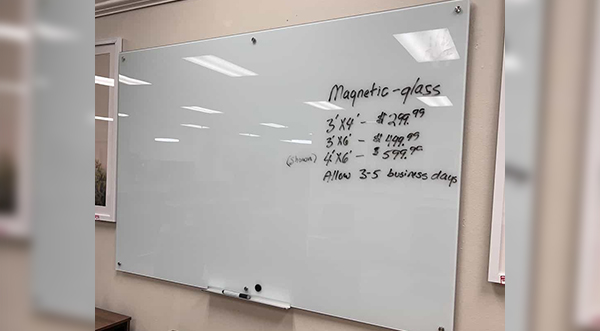 Magnetic-glass
3'X4' - $299.99
3'X6' - $499.99
(shown) 4'X6' - $599.99
Allow 3-5 business days